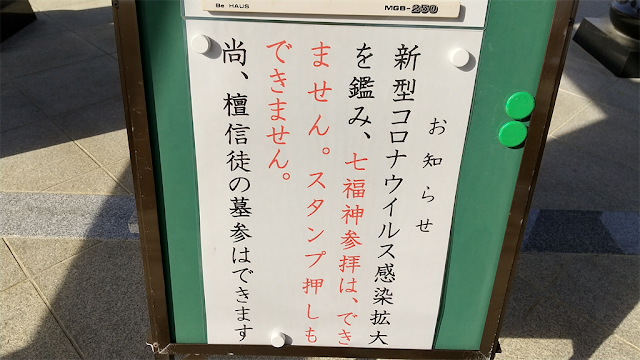 Be HAUS
MGB-230
お知らせ
新型コロナウイルス感染拡大
を鑑み、七福神参拝は、でき
ません。スタンプ押しも
できません。
尚、檀信徒の墓参はできます